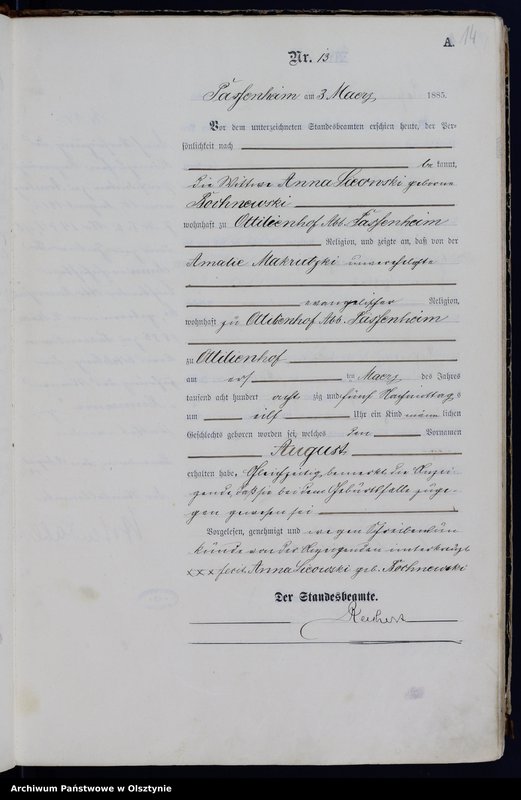 A. 14
Nr. 13
Passenheim am 3 Maerz 1885.
Vor dem unterzeichneten Standesbeamten erschien heute, der Per-
sönlichkeit nach
be kannt,
die Wittwe Anna Licowski geborne
Bochnewski
wohnhaft zu Ottilienhof Abb. Passenheim
Religion, und zeigte an, daß von der
Amalie Makrutzki unverehelichte
evangelischer Religion,
wohnhaft zu Ottilienhof Abb. Passenheim
zu Ottilienhof
am ersten Maerz des Jahres
tausend acht hundert acht zig und fünf Nachmittags
um eilf Uhr ein Kind männ lichen
Geschlechts geboren worden sei, welches den Vornamen
August
erhalten habe. Gleichzeitig bemerkt die Anzei-
gende, daß sie bei dem Geburtsfalle zuge-
gen gewesen sei
Vorgelesen, genehmigt und wegen Schreibensun
kunde von der Anzeigenden unterkreuzt
xxx fecit Anna Licowski geb. Bochnewski
Der Standesbeamte.
Archiwum Państwowe w Olsztynie